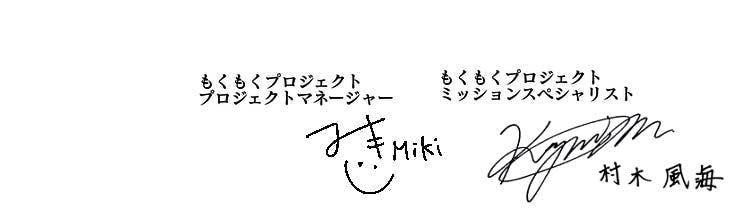 もくもくプロジェクト
プロジェクトマネージャー
みき Miki
もくもくプロジェクト
ミッションスペシャリスト
村木 風海